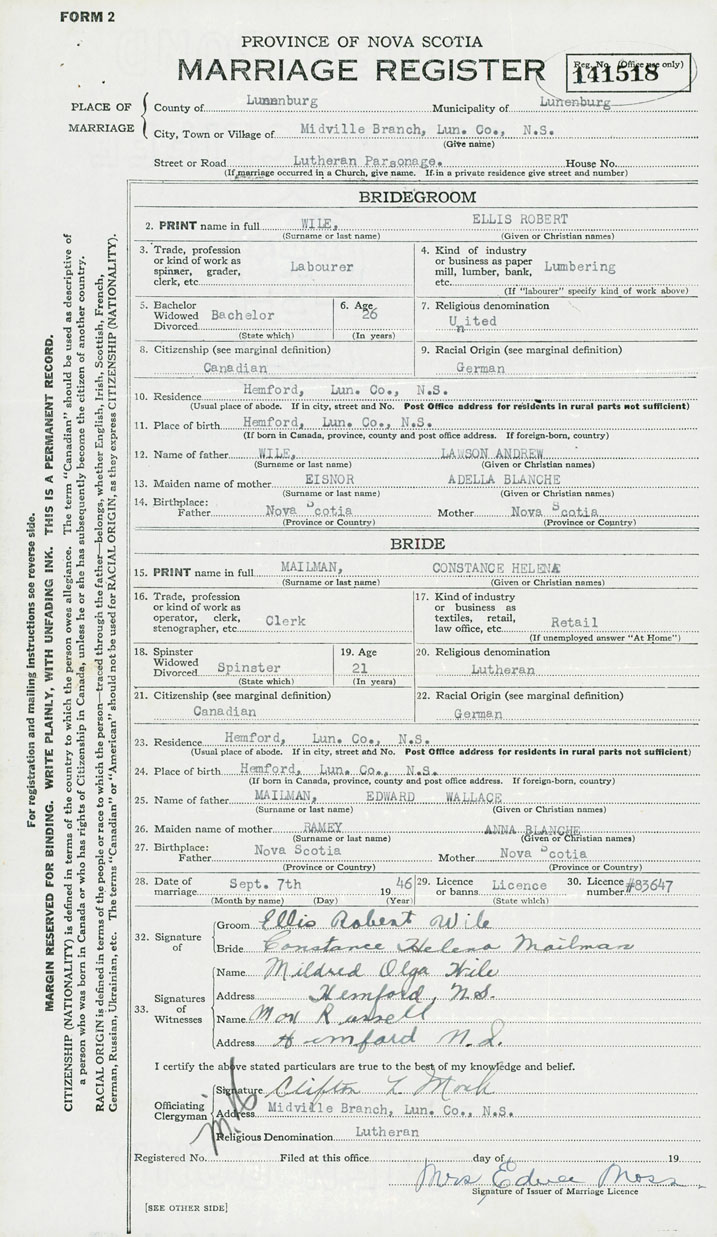 FORM 2
PROVINCE OF NOVA SCOTIA
MARRIAGE REGISTER
Reg. No. (Office use only)
141518
PLACE OF MARRIAGE
County of Lunenburg Municipality of Lunenburg
City, Town or Village of Midville Branch, Lun. Co., N.S.
(Give name)
Street or Road Lutheran Parsonage. House No.
(If marriage occurred in a Church, give name. If in a private residence give street and number)
BRIDEGROOM
2. PRINT name in full WILE, ELLIS ROBERT
(Surname or last name) (Given or Christian names)
3. Trade, profession or kind of work as spinner, grader, clerk, etc. Labourer
4. Kind of industry or business as paper mill, lumber, bank, etc. Lumbering
(If "labourer" specify kind of work above)
5. Bachelor Widowed Divorced Bachelor
(State which)
6. Age 26
(In years)
7. Religious denomination
United
8. Citizenship (see marginal definition)
Canadian
9. Racial Origin (see marginal definition)
German
10. Residence Hemford, Lun. Co., N.S.
(Usual place of abode. If in city, street and No. Post Office address for residents in rural parts not sufficient)
11. Place of birth Hemford, Lun. Co., N.S.
(If born in Canada, province, county and post office address. If foreign-born, country)
12. Name of father WILE, LAWSON ANDREW
(Surname or last name) (Given or Christian names)
13. Maiden name of mother EISNOR ADELLA BLANCHE
(Surname or last name) (Given or Christian names)
14. Birthplace: Father Nova Scotia Mother Nova Scotia
(Province or Country) (Province or Country)
BRIDE
15. PRINT name in full MAILMAN, CONSTANCE HELENA
(Surname or last name) (Given or Christian names)
16. Trade, profession or kind of work as operator, clerk, stenographer, etc. Clerk
17. Kind of industry or business as textiles, retail, law office, etc. Retail
(If unemployed answer "At Home")
18. Spinster Widowed Divorced Spinster
(State which)
19. Age
21
(In years)
20. Religious denomination
Lutheran
21. Citizenship (see marginal definition)
Canadian
22. Racial Origin (see marginal definition)
German
23. Residence Hemford, Lun. Co., N.S.
(Usual place of abode. If in city, street and No. Post Office address for residents in rural parts not sufficient)
24. Place of birth Hemford, Lun. Co., N.S.
(If born in Canada, province, county and post office address. If foreign-born, country)
25. Name of father MAILMAN, EDWARD WALLACE
(Surname or last name) (Given or Christian names)
26. Maiden name of mother RAMEY ANNA BLANCHE
(Surname or last name) (Given or Christian names)
27. Birthplace: Father Nova Scotia Mother Nova Scotia
(Province or Country) (Province or Country)
28. Date of marriage Sept. 7th 1946
(Month by name) (Day) (Year)
29. Licence or banns. Licence
(State which)
30. Licence number #83647
32. Signature of
Groom Ellis Robert Wile
Bride Constance Helena Mailman
33. Signatures of Witnesses
Name Mildred Olga Wile
Address Hemford, N.S.
Name Russell
Address Hemford N.S.
I certify the above stated particulars are true to the best of my knowledge and belief.
Officiating Clergyman
Signature Clifton L Mosh
Address Midville Branch, Lun. Co., N.S.
Religious Denomination Lutheran
Registered No. Filed at this office day of 19
Mrs Moss
Signature of Issuer of Marriage Licence
[SEE OTHER SIDE]
For registration and mailing instructions see reverse side.
MARGIN RESERVED FOR BINDING. WRITE PLAINLY, WITH UNFADING INK. THIS IS A PERMANENT RECORD.
CITIZENSHIP (NATIONALITY) is defined in terms of the country to which the person owes allegiance. The term "Canadian" should be used as descriptive of
a person who was born in Canada or who has rights of Citizenship in Canada, unless he or she has subsequently become the citizen of another country.
RACIAL ORIGIN is defined in terms of the people or race to which the person—traced through the father—belongs, whether English, Irish, Scottish, French,
German, Russian, Ukrainian, etc. The terms "Canadian" or "American" should not be used for RACIAL ORIGIN, as they express CITIZENSHIP (NATIONALITY).